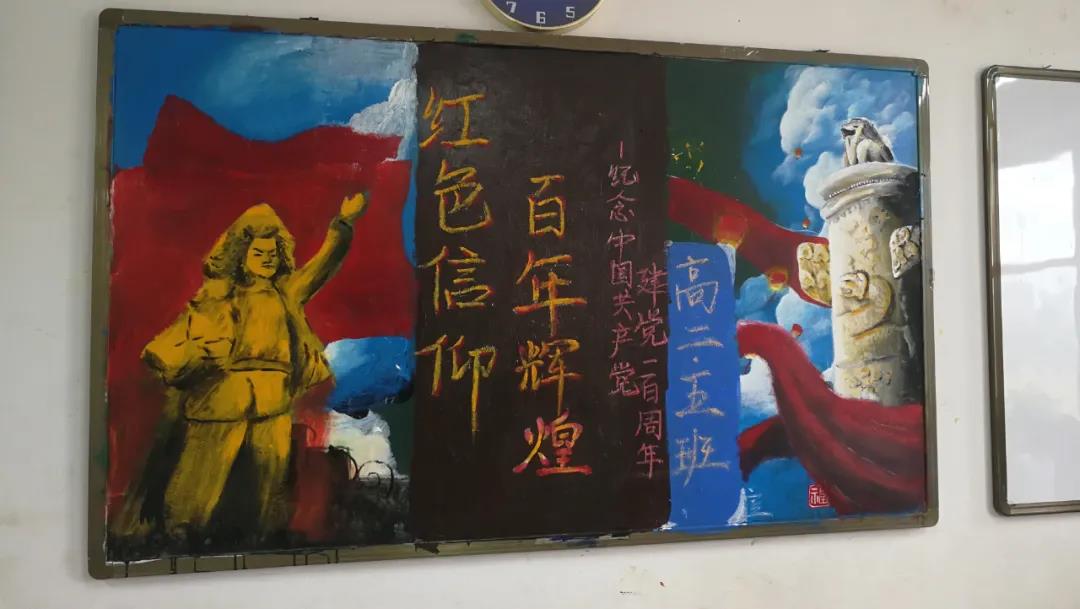 7 6 5
红色信仰
百年辉煌
－纪念中国共产党
建党一百周年
高二·五班
福